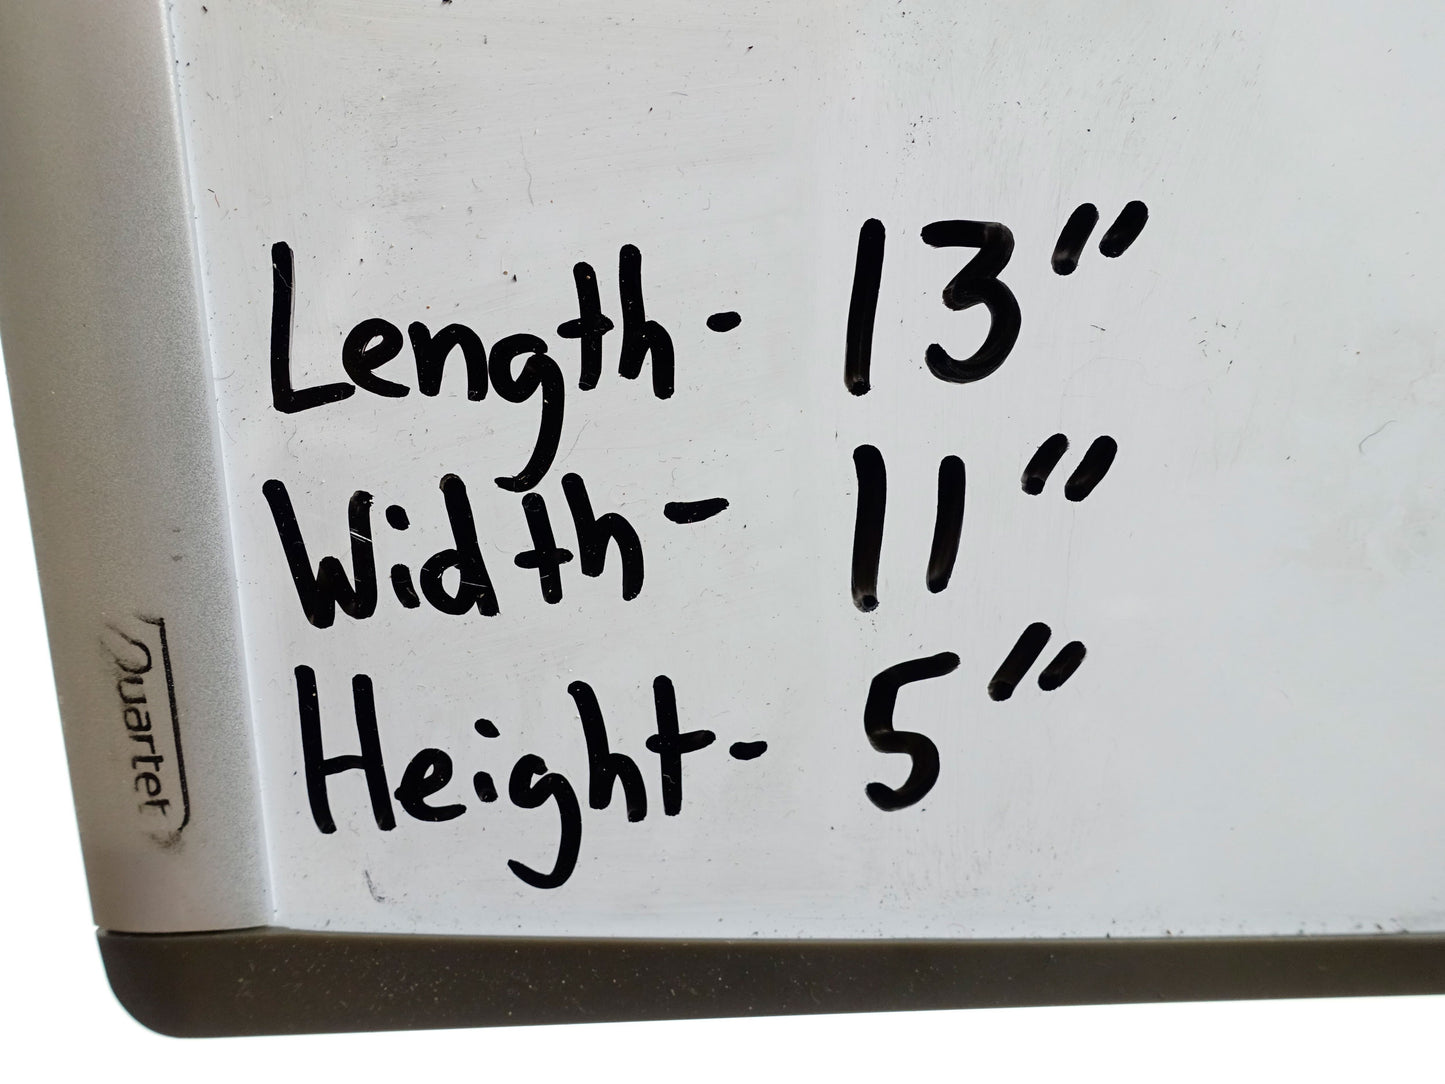 Length- 13"
Width- 11"
Height- 5"
Quartet